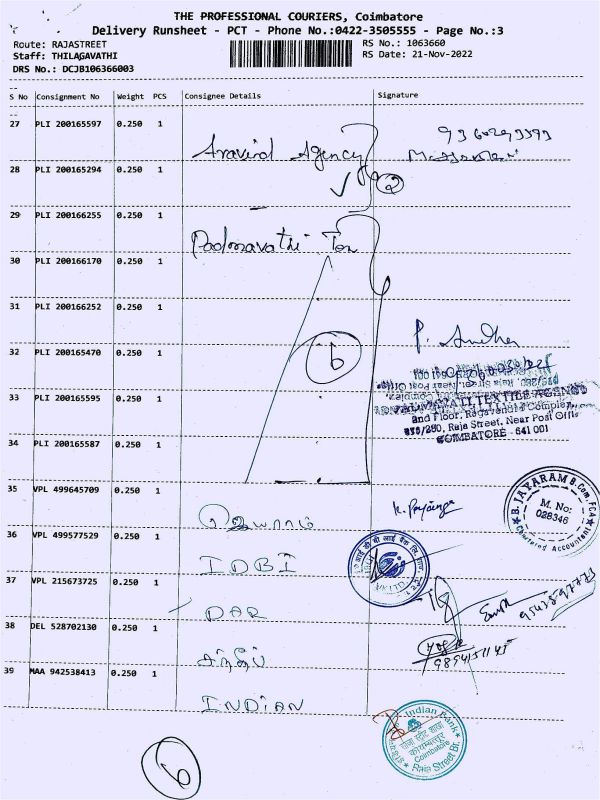 THE PROFESSIONAL COURIERS, Coimbatore
Delivery Runsheet - PCT - Phone No.:0422-3505555 - Page No.:3
Route: RAJASTREET
RS No.: 1063660
Staff: THILAGAVATHI
RS Date: 21-Nov-2022
DRS No.: DCJB106366003
S No Consignment No Weight PCS Consignee Details Signature
27 PLI 200165597 0.250 1
Aravind Agency
28 PLI 200165294 0.250 1
2
29 PLI 200166255 0.250 1
Padmavathi Tex
30 PLI 200166170 0.250 1
31 PLI 200166252 0.250 1
32 PLI 200165470 0.250 1
6
33 PLI 200165595 0.250 1
TEXTILE AGENCY
2nd Floor, Ragavendra Complex,
Raja Street, Near Post Office
COIMBATORE - 641 001
34 PLI 200165587 0.250 1
35 VPL 499645709 0.250 1
ஜெயராம்
B. JAYARAM B.Com, FCA
M. No:
028346
Chartered Accountant
36 VPL 499577529 0.250 1
IDBI
37 VPL 215673725 0.250 1
DAR
38 DEL 528702130 0.250 1
39 MAA 942538413 0.250 1
INDIAN
Indian Bank
Coimbatore
Raja Street Br.
6